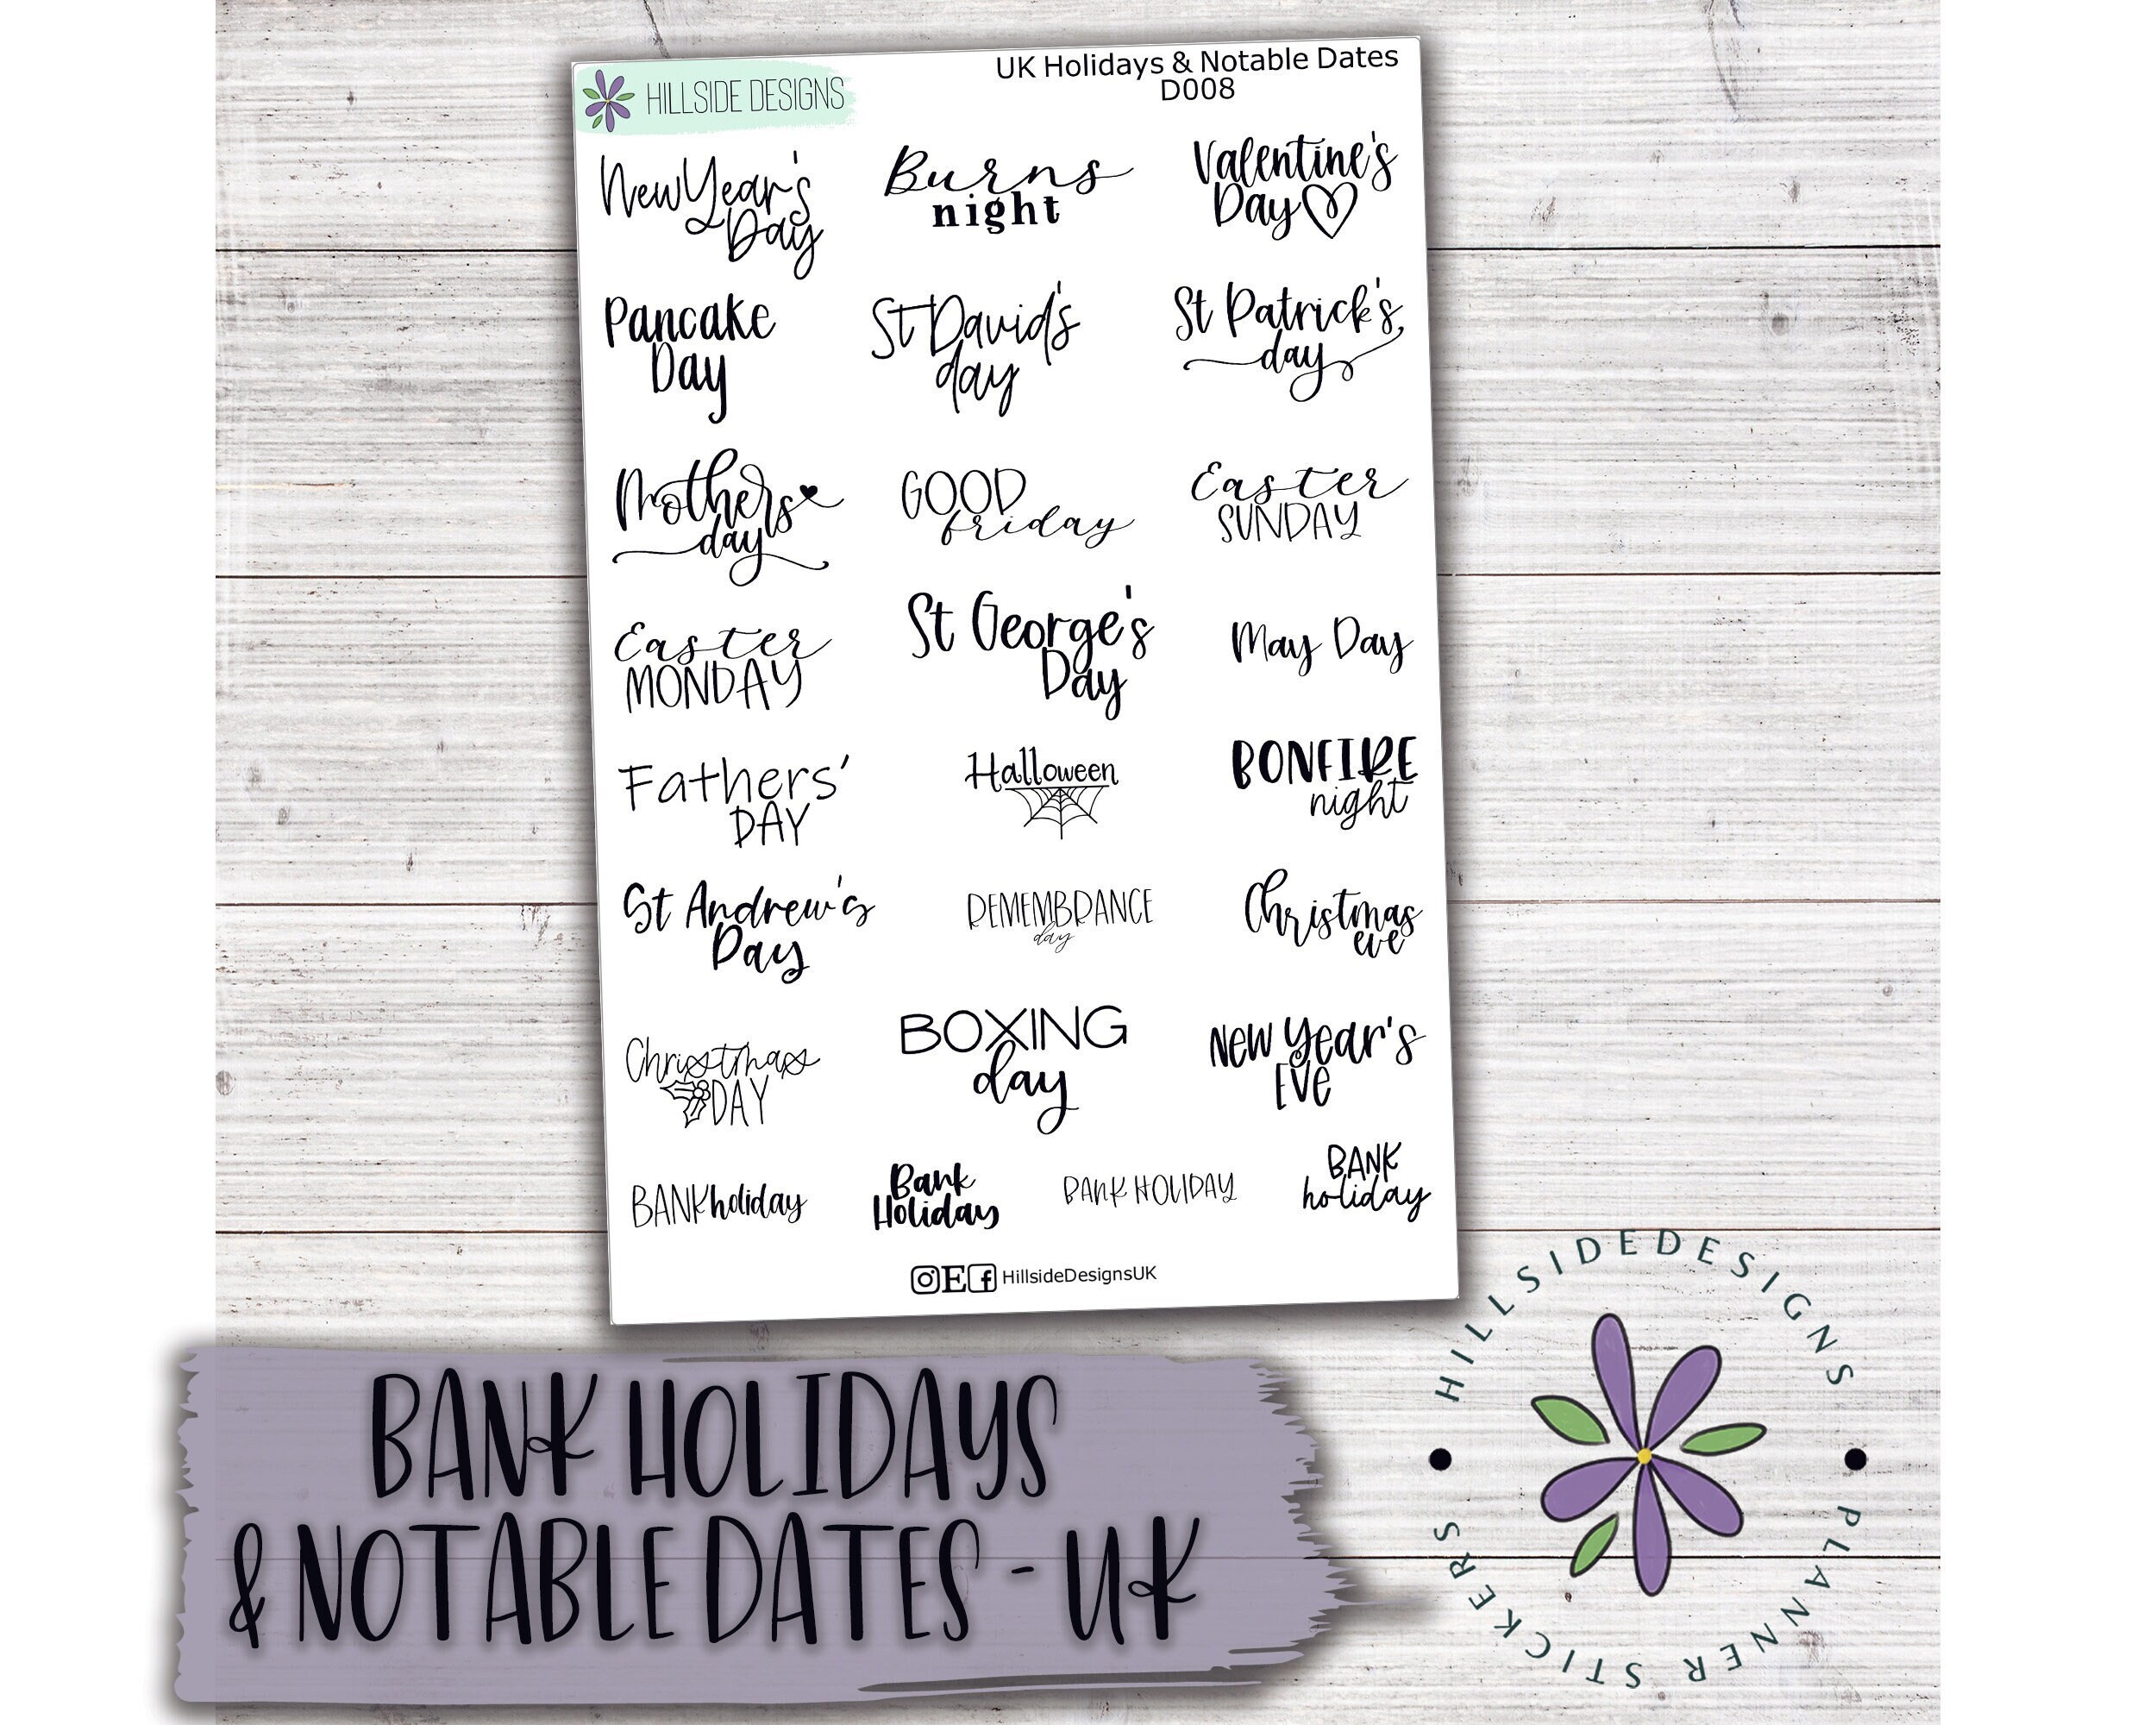 HILLSIDE DESIGNS
UK Holidays & Notable Dates
D008
New Year's
Day
Burns
night
Valentine's
Day
Pancake
Day
St David's
day
St Patrick's
day
Mothers
day
GOOD
friday
Easter
SUNDAY
Easter
MONDAY
St George's
Day
May Day
Fathers'
DAY
Halloween
BONFIRE
night
St Andrew's
Day
REMEMBRANCE
day
Christmas
eve
Christmas
DAY
BOXING
day
New Year's
EVE
BANK holiday
Bank
Holiday
BANK HOLIDAY
BANK
holiday
E HillsideDesignsUK
BANK HOLIDAYS
& NOTABLE DATES - UK
HILLSIDEDESIGNS
PLANNER STICKERS